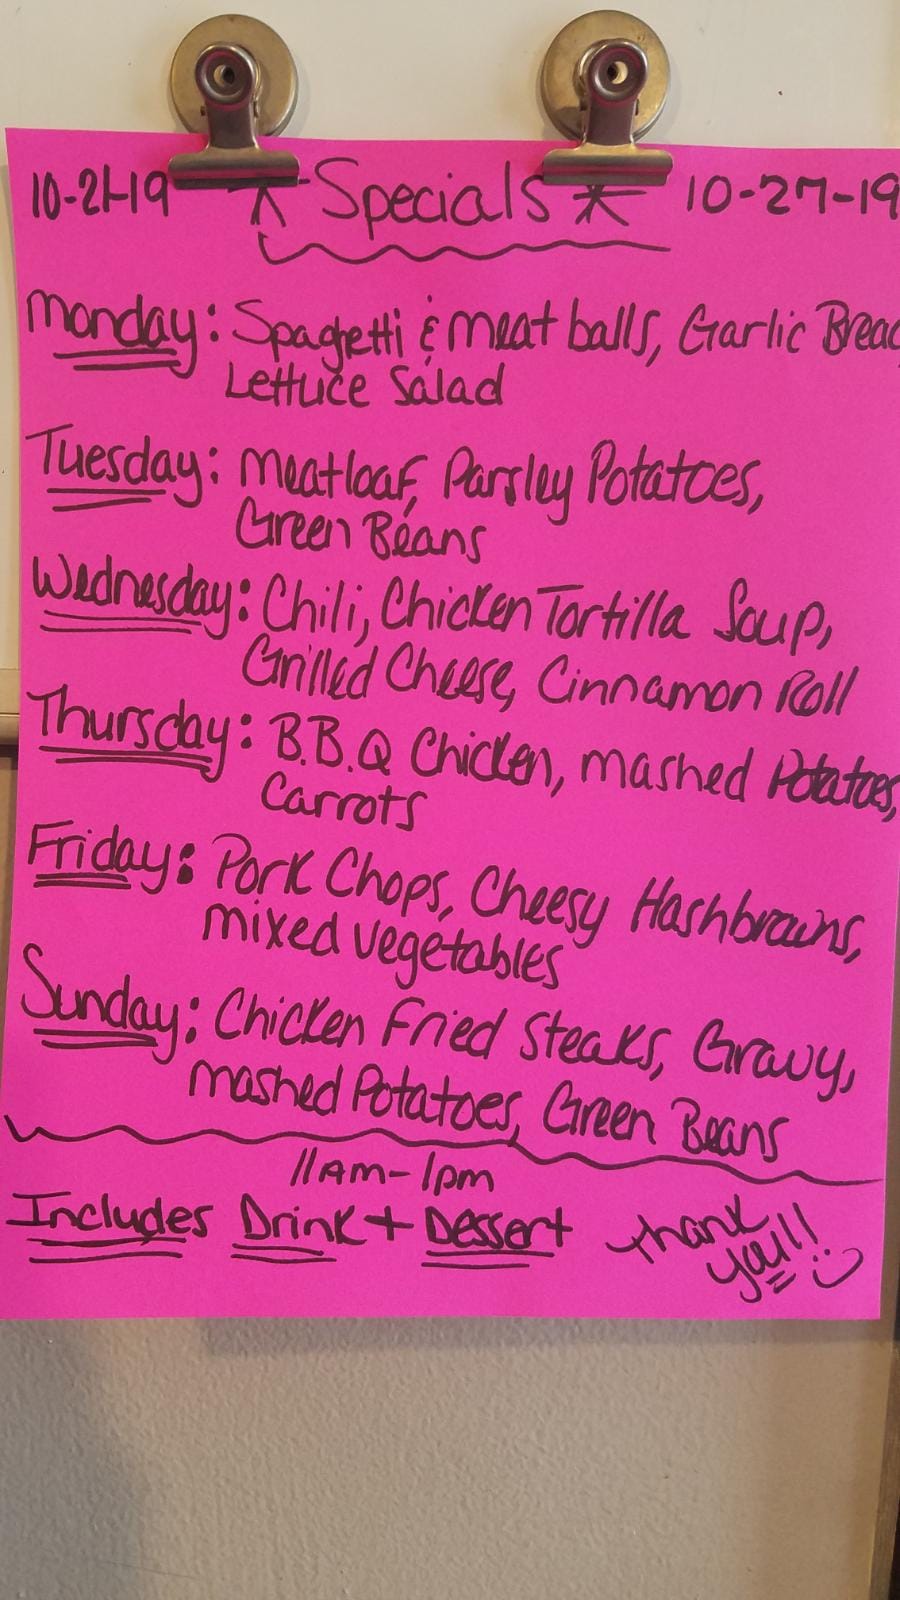 10-21-19 * Specials * 10-27-19
Monday: Spaghetti & Meat balls, Garlic Bread
Lettuce Salad
Tuesday: Meatloaf, Parsley Potatoes,
Green Beans
Wednesday: Chili, Chicken Tortilla Soup,
Grilled Cheese, Cinnamon Roll
Thursday: B.B.Q Chicken, Mashed Potatoes,
Carrots
Friday: Pork Chops, Cheesy Hashbrowns,
Mixed Vegetables
Sunday: Chicken Fried Steaks, Gravy,
Mashed Potatoes, Green Beans
11AM-1pm
Includes Drink + Dessert Thank
you!!